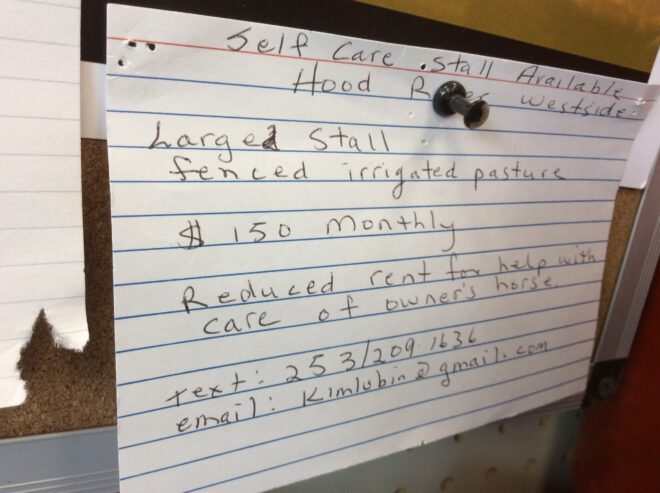 Self Care Stall Available
Hood River Westside
Large Stall
fenced irrigated pasture
$ 150 Monthly
Reduced rent for help with
care of owner's horse.
text: 253/209.1636
email: Kimlubin@gmail.com